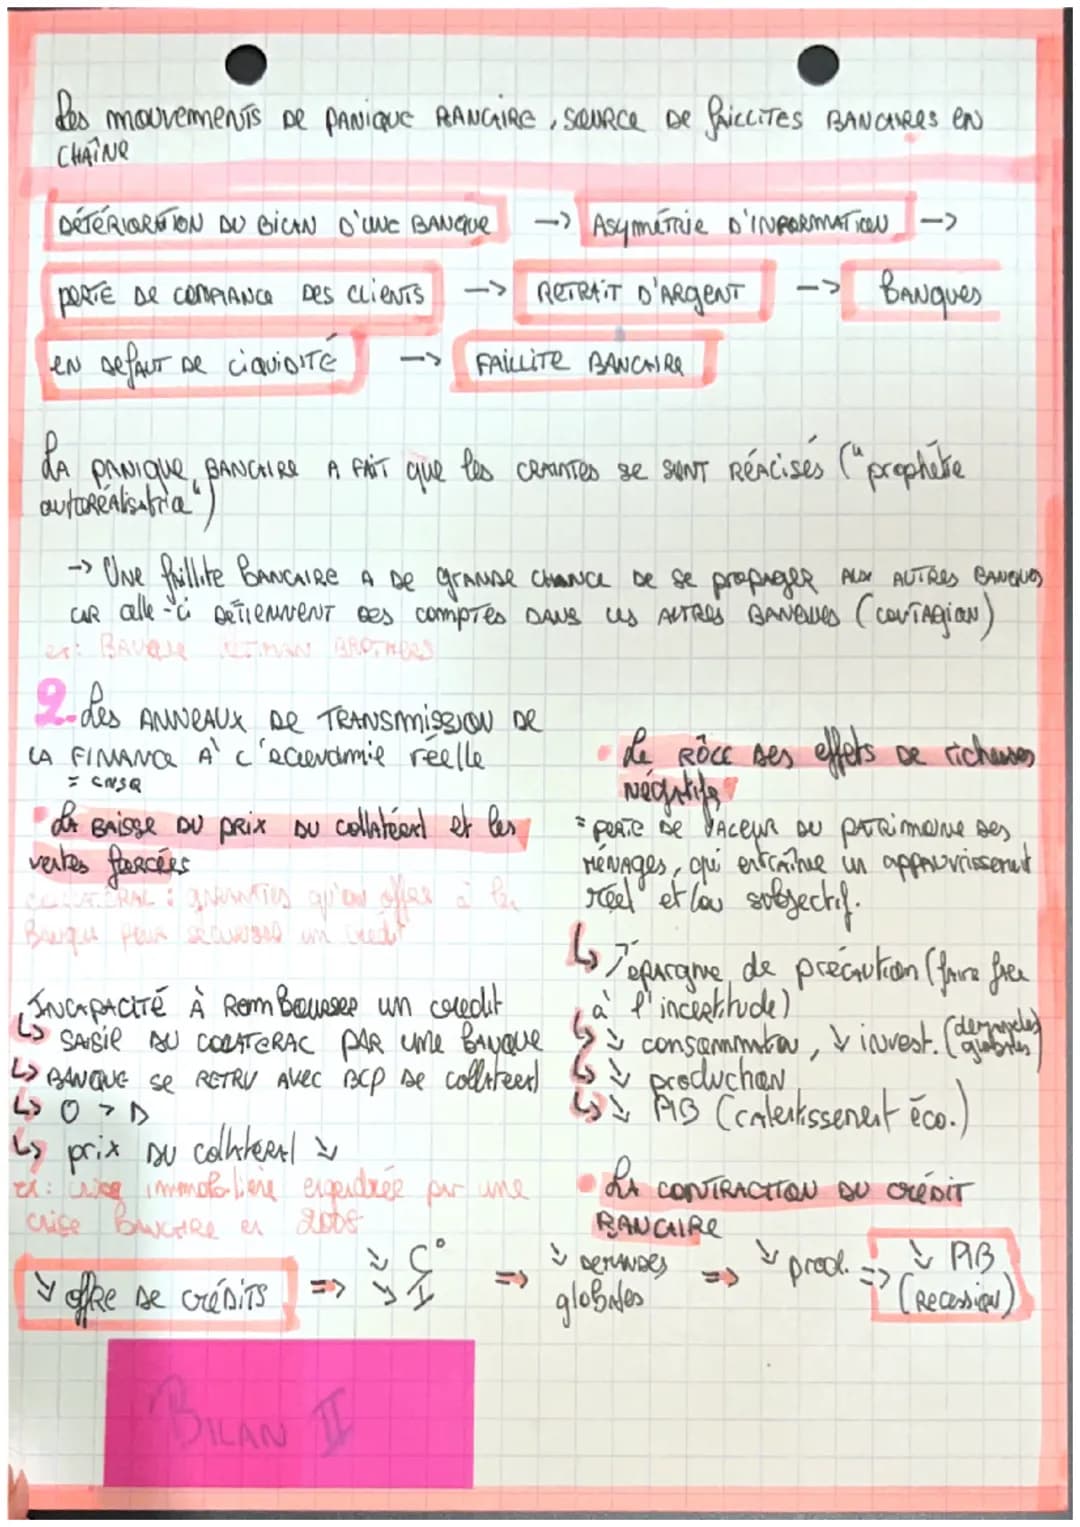 Les mouvements de panique bancaire, source de faillites bancaires en
chaîne
Détérioration du bilan d'une banque -> Asymétrie d'information ->
perte de confiance des clients -> Retrait d'argent -> Banques
en defaut de liquidité -> Faillite bancaire
La panique bancaire a fait que les craintes se sont réalisés ("prophétie
autoréalisatrice")
-> Une faillite bancaire a de grande chance de se propager aux autres banques
car celle-ci détiennent des comptes dans les autres banques (contagion)
ex: Banque Lehman Brothers
2. Les anneaux de transmission de
la finance à l'économie réelle
= cnsq
• La baisse du prix du collatéral et les
ventes forcées
Collatéral : garanties qu'on offre à la
Banque pour sécuriser un crédit
Incapacité à rembourser un credit
↳ Saisie du collateral par une banque
↳ Banque se retrv avec bcp de collateral
↳ O > D
↳ prix du collateral ↘
ex: crise immobilière engendrée par une
crise bancaire en 2008
• Le rôle des effets de richesses
négatifs
= perte de valeur du patrimoine des
ménages, qui entraîne un appauvrissement
réel et/ou subjectif.
↳ ↗ épargne de précaution (faire face
à l'incertitude)
↳ ↘ consommation, ↘ invest. (demandes globales)
↳ ↘ production
↳ ↘ PIB (ralentissement éco.)
• La contraction du crédit
bancaire
↘ offre de crédits => ↘ C° ↘ I => ↘ demandes globales => ↘ prod. => ↘ PIB (Recession)
Bilan II